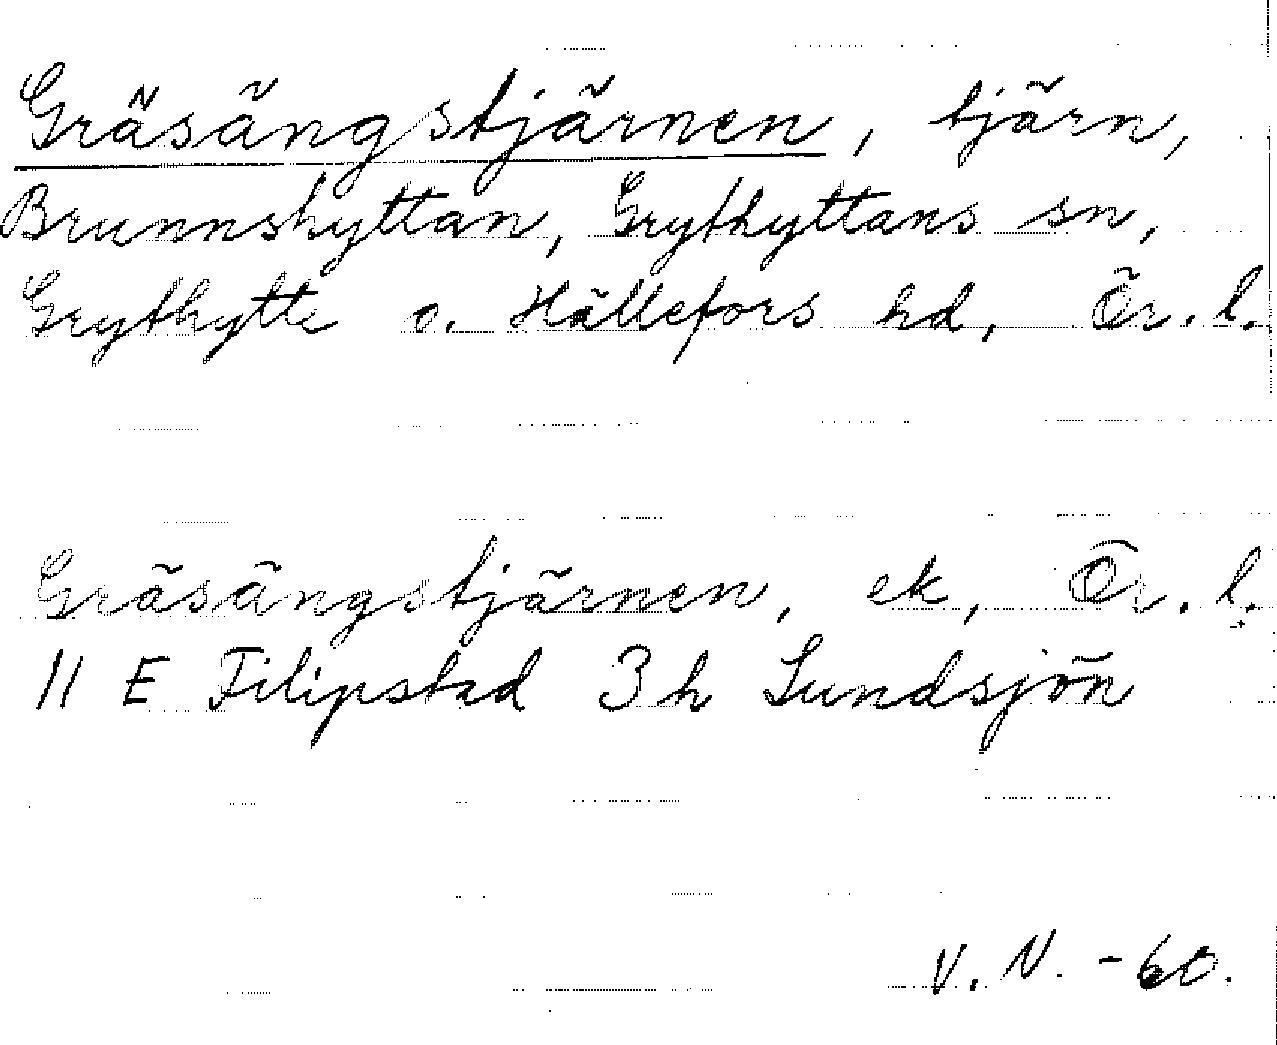 Gräsängstjärnen, tjärn,
Brunnshyttan, Grythyttans sn,
Grythytte o. Hällefors hd, Ör. l.
Gräsängstjärnen, ek, Ör. l.
11 E Filipstad 3 h Sundsjön
V. N. -60.